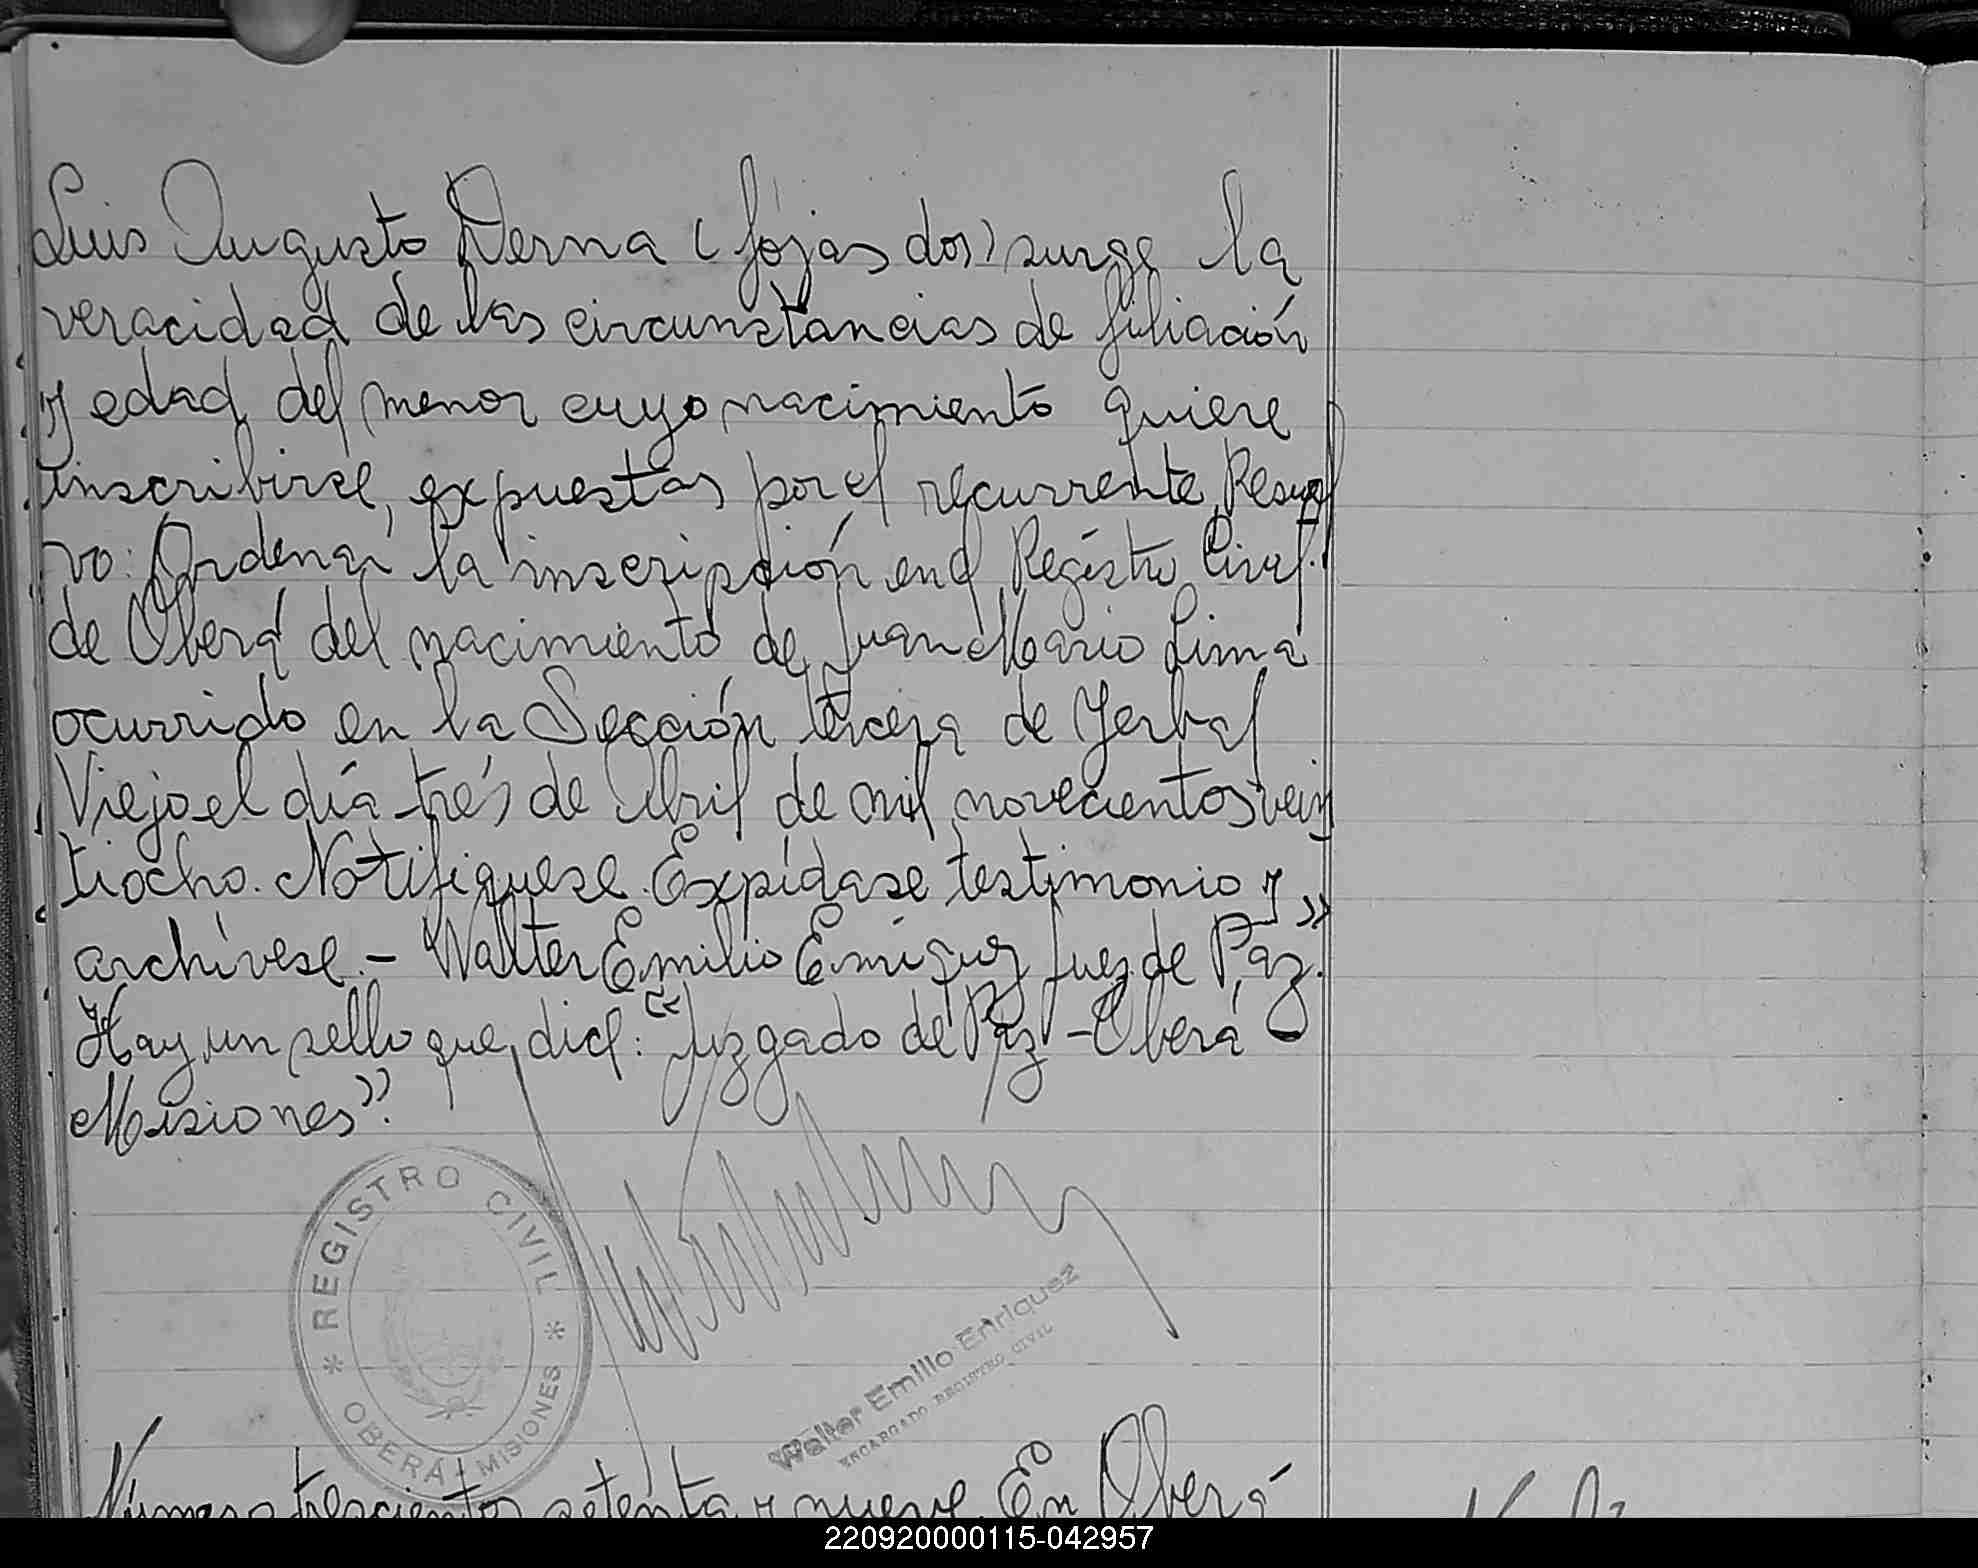 Luis Augusto Derna (fojas dos) surge la
veracidad de las circunstancias de filiación
y edad del menor cuyo nacimiento quiere
inscribirse, expuestas por el recurrente, Resuel
vo: Ordenar la inscripción en el Registro Civil
de Oberá del nacimiento de Juan Mario Lima
ocurrido en la Sección tercera de Yerbal
Viejo el día tres de Abril de mil novecientos vein
tiocho. Notifíquese. Expídase testimonio y
archívese.- Walter Emilio Enríquez Juez de Paz".
Hay un sello que dice: "Juzgado de Paz - Oberá -
Misiones".
REGISTRO CIVIL
* OBERÁ - MISIONES *
Walter Emilio Enriquez
ENCARGADO REGISTRO CIVIL
Número trescientos setenta y nueve. En Oberá
220920000115-042957